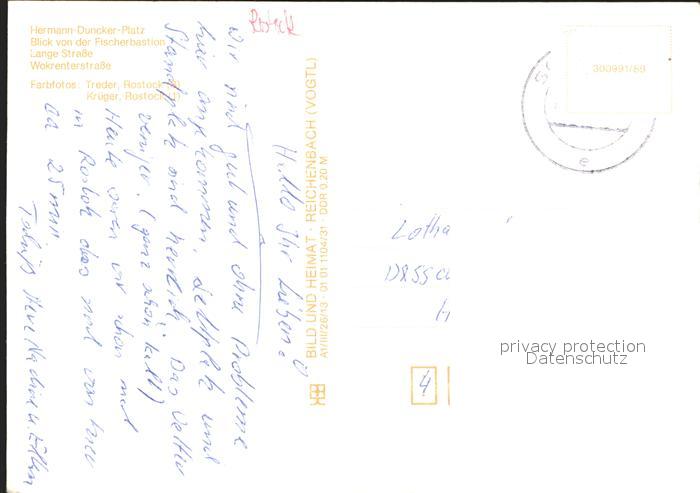 Hermann-Duncker-Platz
Blick von der Fischerbastion
Lange Straße
Wokrenterstraße
Farbfotos: Treder, Rostock
Krüger, Rostock (1)
Rostock
Hallo Ihr Lieben!
wir sind gut und ohne Probleme
hier angekommen. Zeltplatz und
Standplatz sind herrlich. Das Wetter
weniger. (ganz schön kalt)
Heute waren wir schon mal
in Rostock das sind von hier
ca 25 min
BILD UND HEIMAT · REICHENBACH (VOGTL)
A1/III/26/13 · 01 01 1104/31 · DDR 0,20 M
300991/89
e
Lotha
Dessa
4
privacy protection
Datenschutz